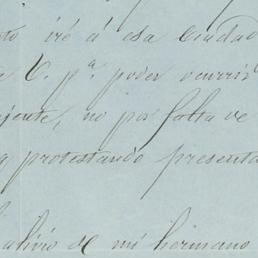 to iré á esa Ciudad
V. pª. poder ocurrir
ente, no por falta de
protestando presenta
alivio de mi hermano